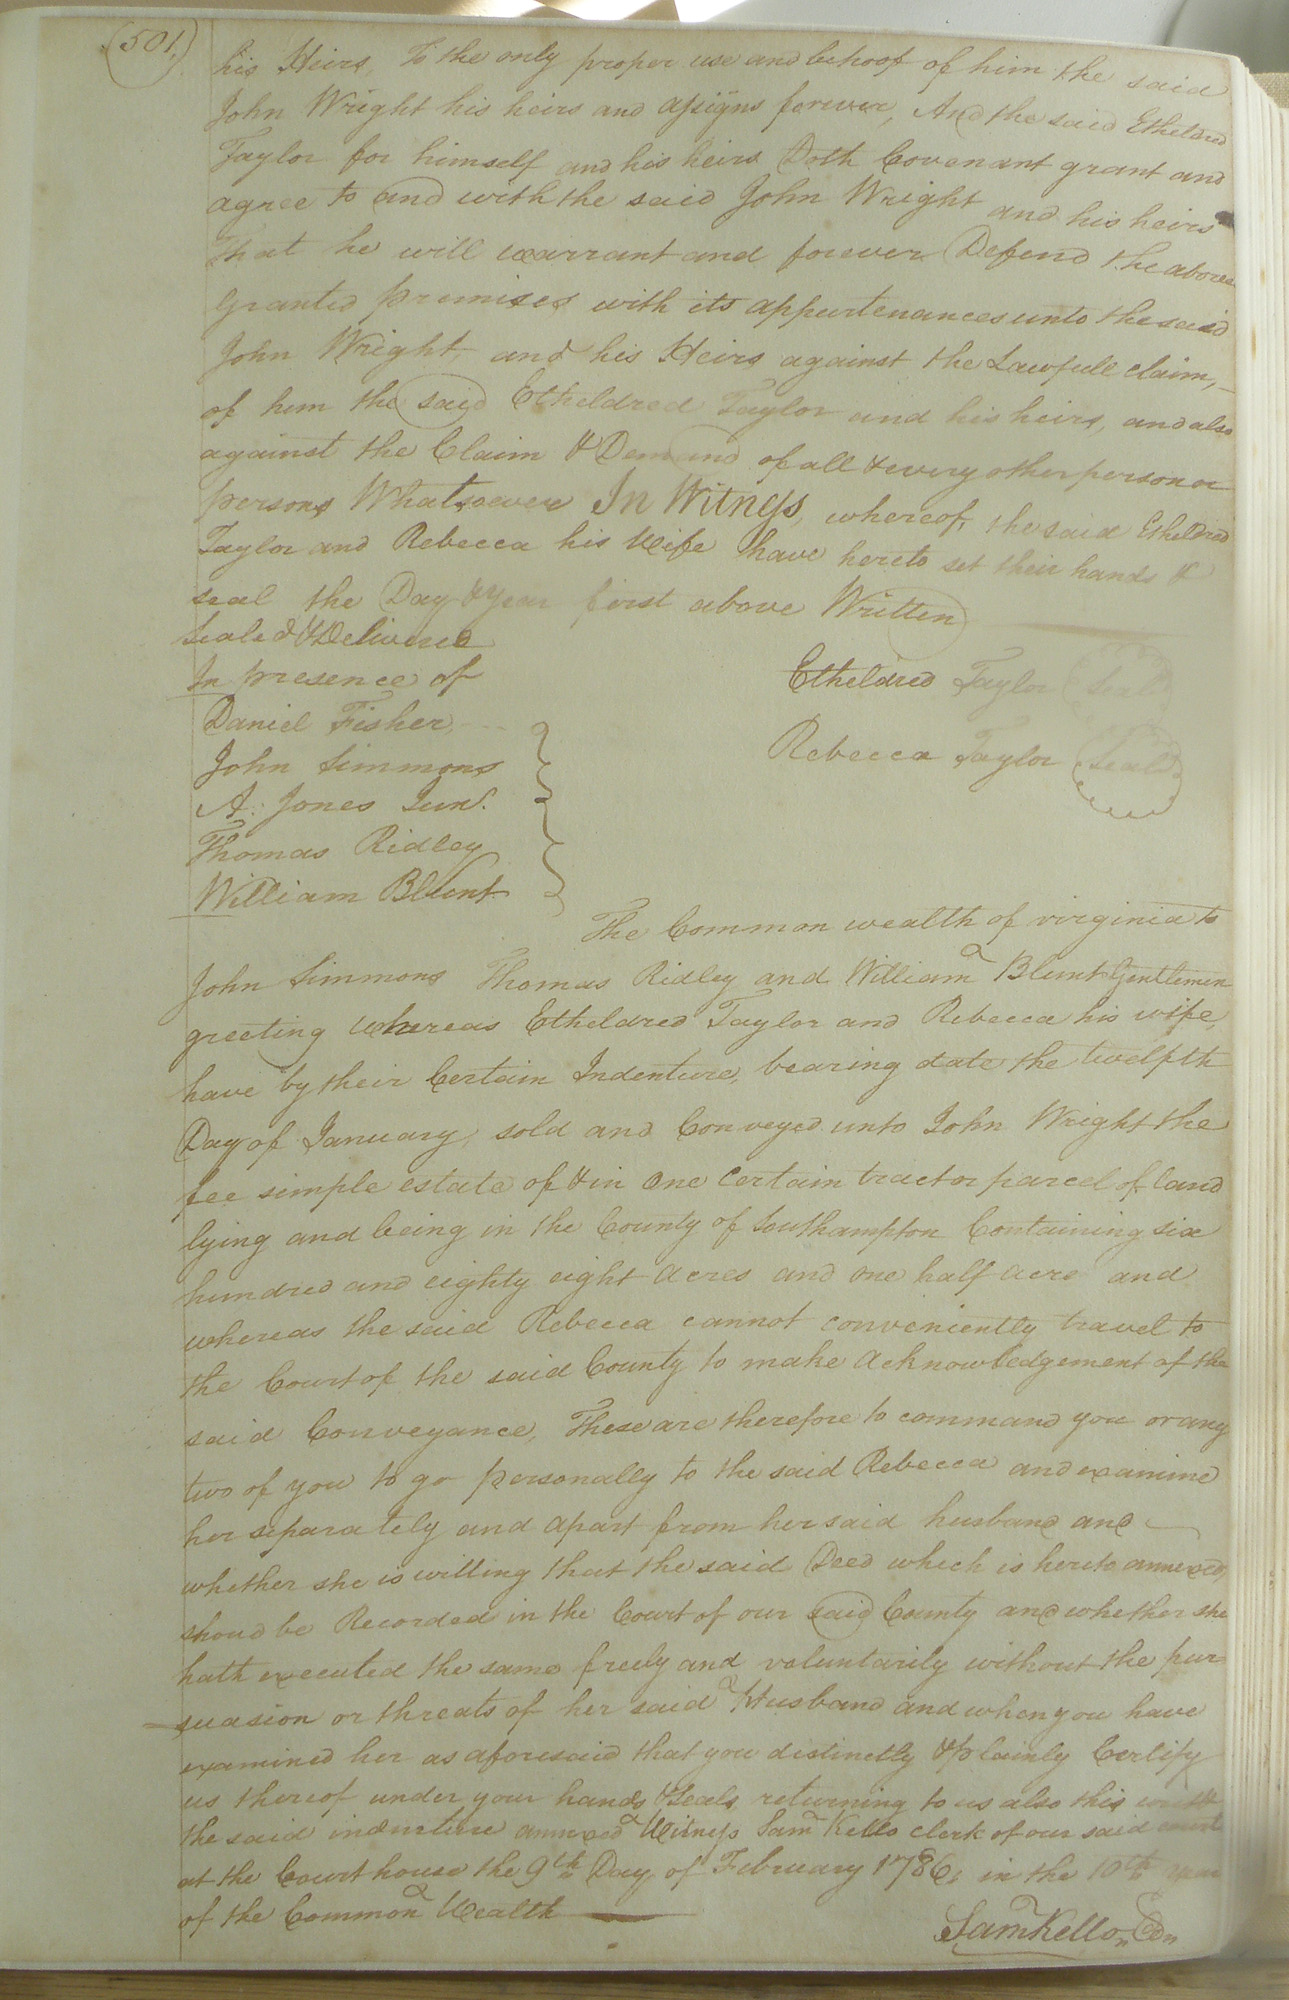 (501)
his Heirs, To the only proper use and behoof of him the said
John Wright his heirs and assigns forever, And the said Etheldred
Taylor for himself and his heirs Doth Covenant grant and
agree to and with the said John Wright and his heirs
That he will warrant and forever Defend the above
granted premises with its appurtenances unto the said
John Wright, and his Heirs against the Lawfull claim,
of him the said Etheldred Taylor and his heirs, and also
against the Claim & Demand of all & every other person or
persons Whatsoever In Witness, whereof, the said Etheldred
Taylor and Rebecca his Wife have hereto set their hands &
seal the Day & Year first above Written
Sealed & Delivered
In presence of
Etheldred Taylor (Seal)
Daniel Fisher
Rebecca Taylor (Seal)
John Simmons
A: Jones Junr.
Thomas Ridley
William Blunt
The Common wealth of virginia to
John Simmons Thomas Ridley and William Blunt Gentlemen
greeting Whereas Etheldred Taylor and Rebecca his wife,
have by their Certain Indenture, bearing date the twelfth
Day of January, sold and Conveyed unto John Wright the
fee simple estate of & in One Certain tract or parcel of land
lying and being in the County of Southampton Containing six
hundred and eighty eight Acres and one half acre and
whereas the said Rebecca cannot conveniently travel to
the Court of the said County to make Acknowledgement of the
said Conveyance, These are therefore to command you or any
two of you to go personally to the said Rebecca and examine
her separately and apart from her said husband and
whether she is willing that the said Deed which is hereto annexed,
shoud be Recorded in the Court of our said County and whether she
hath executed the same freely and voluntarily without the pur
suasion or threats of her said Husband and when you have
examined her as aforesaid that you distinctly & plainly Certify
us thereof under your hands & Seals returning to us also this writ &
the said indenture annexed Witness Sam Kello clerk of our said court
at the Court house the 9th Day of February 1786, in the 10th year
of the Common Wealth
Sam Kello Cn